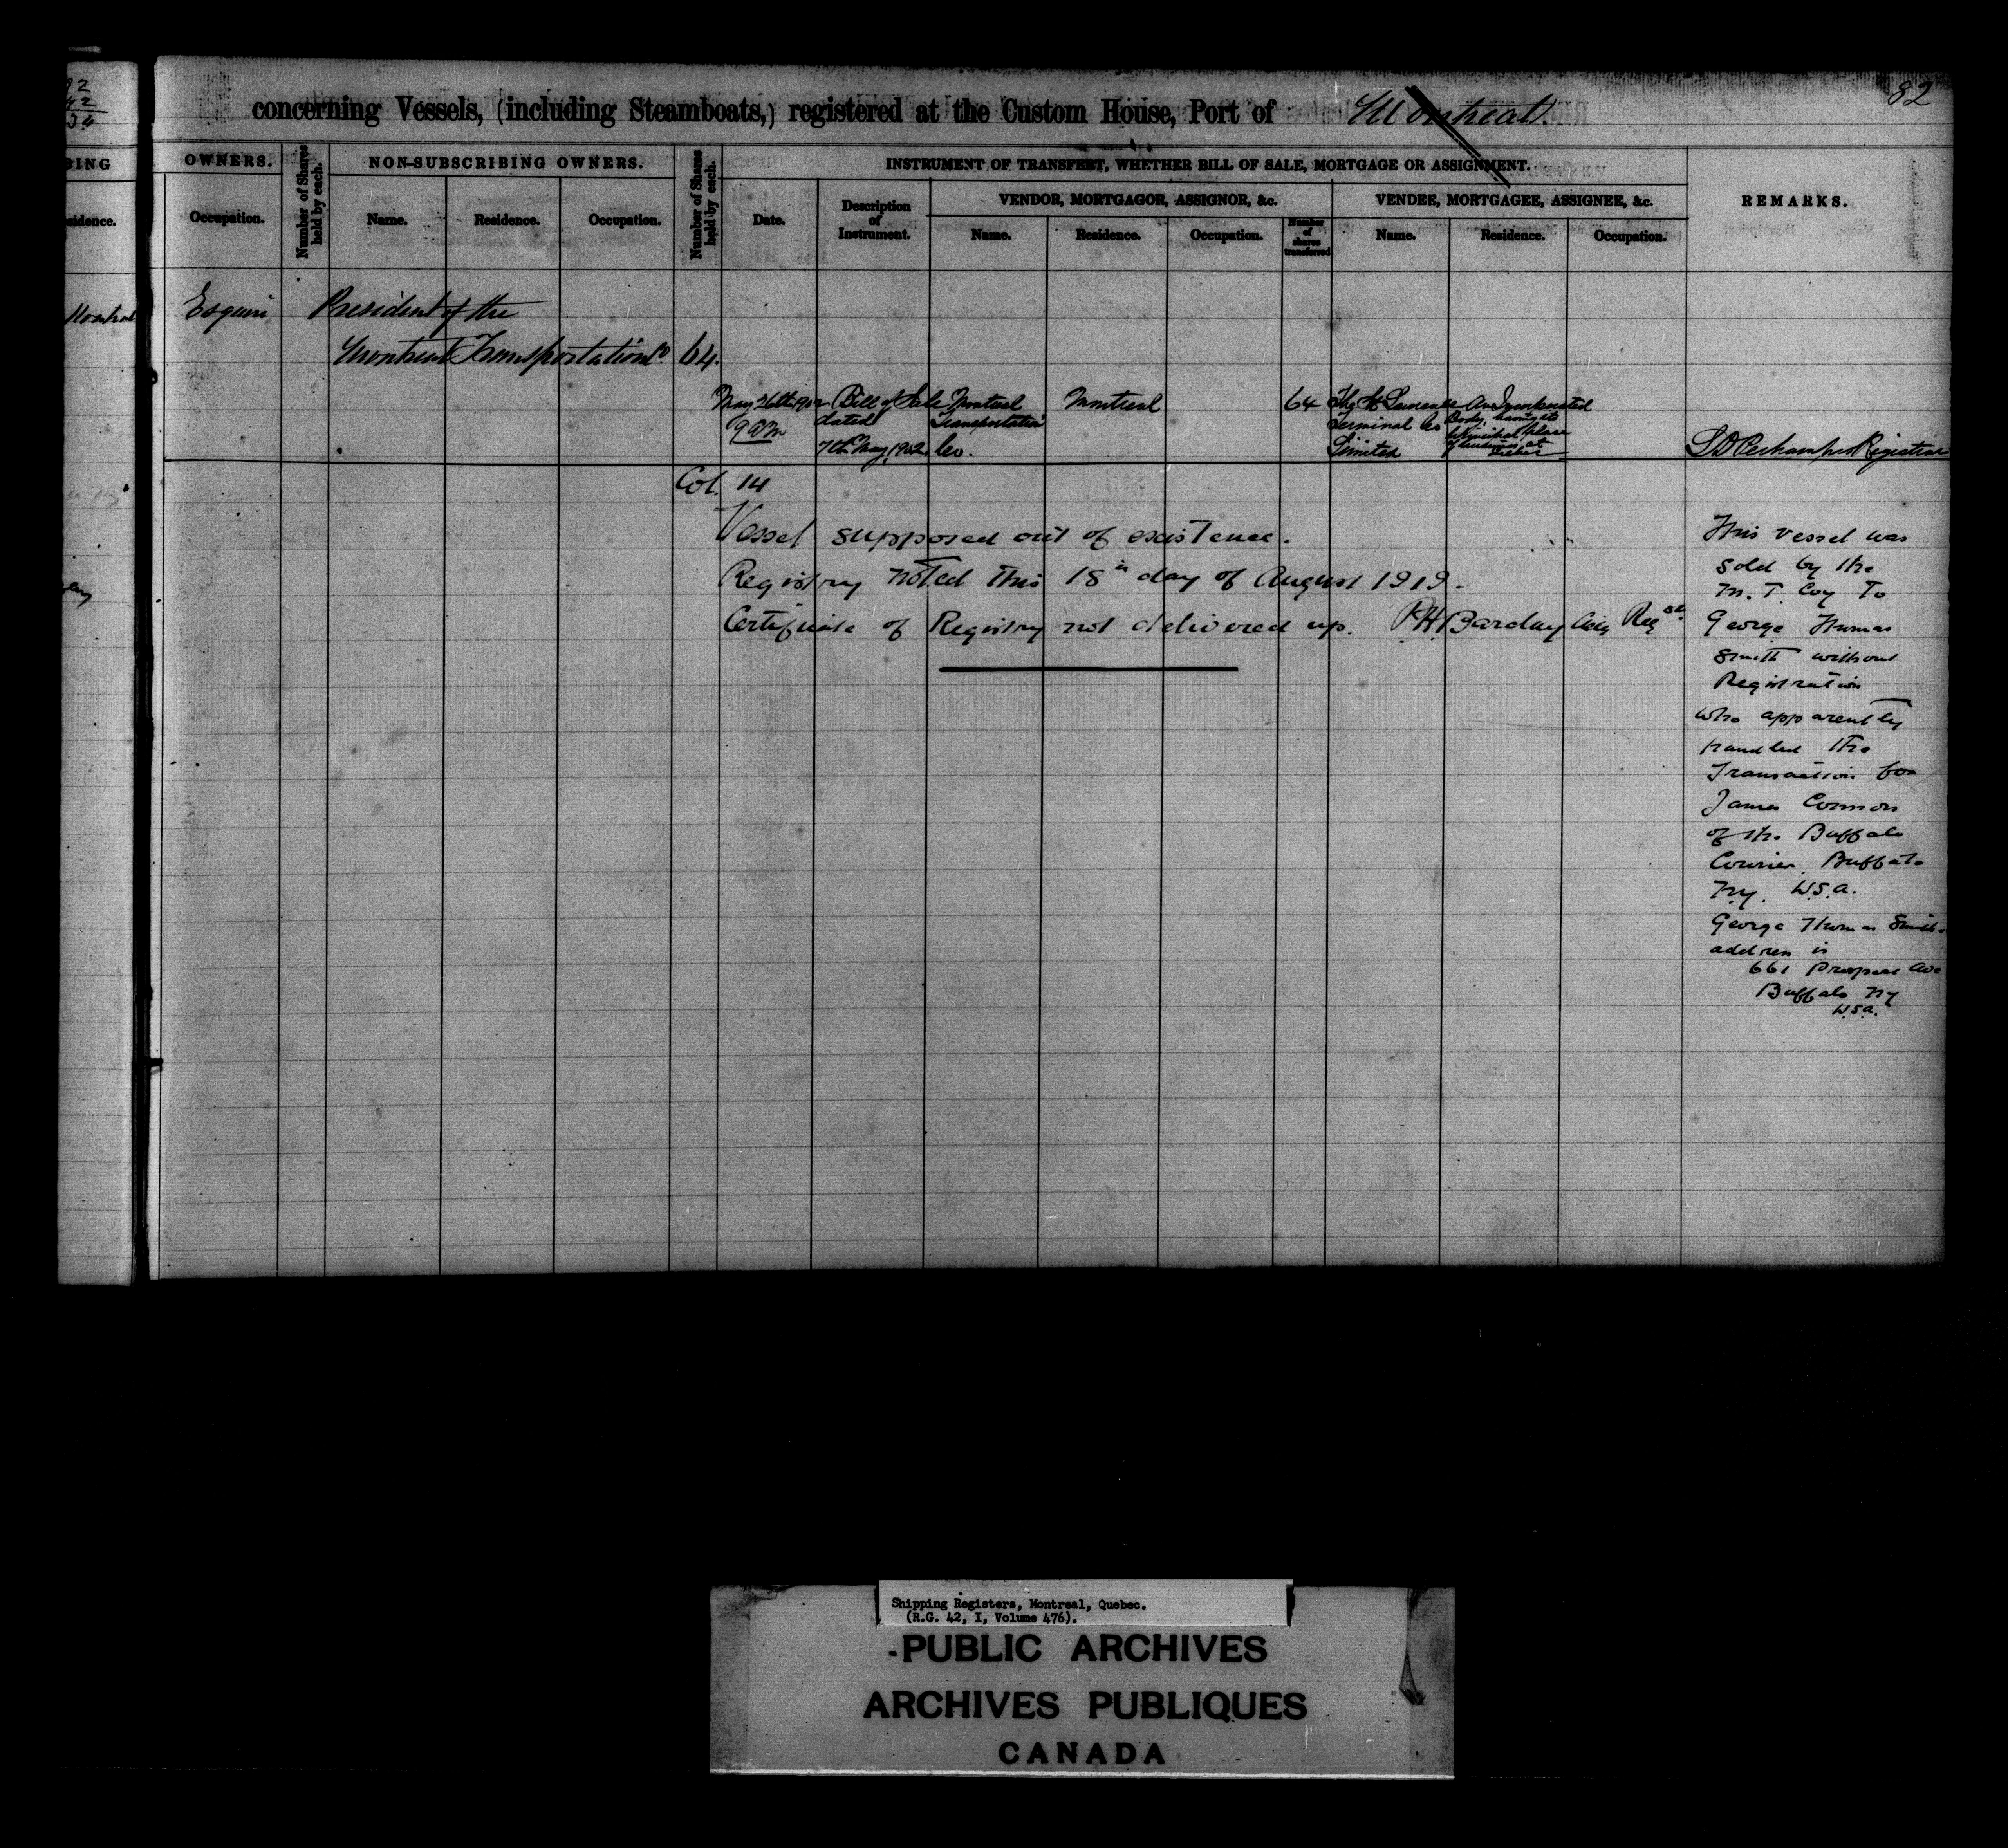 82
concerning Vessels, (including Steamboats,) registered at the Custom House, Port of Montreal.
OWNERS.
Number of Shares held by each.
NON-SUBSCRIBING OWNERS.
Number of Shares held by each.
INSTRUMENT OF TRANSFERT, WHETHER BILL OF SALE, MORTGAGE OR ASSIGNMENT.
REMARKS.
VENDOR, MORTGAGOR, ASSIGNOR, &c.
VENDEE, MORTGAGEE, ASSIGNEE, &c.
sidence.
Occupation.
Name.
Residence.
Occupation.
Date.
Description of Instrument.
Name.
Residence.
Occupation.
Number of shares transferred
Name.
Residence.
Occupation.
Esquire President of the
Montreal Transportation Co 64.
May 26th 1902 9 am
Bill of Sale dated 7th May 1902
Montreal Transportation Co.
Montreal
64
The St Lawrence Terminal Co Limited
An Incorporated Body having its principal place of business at
Registrar
Col. 14
Vessel supposed out of existence.
Registry noted this 18th day of August 1919.
Certificate of Registry not delivered up. Barclay
This vessel was
sold by the
M. T. Coy To
George Thomas
Smith without
Registration
who apparently
handled the
Transaction for
James Connors
of the Buffalo
Courier Buffalo
N.Y. U.S.A.
George Thomas Smith
address is
661 Prospect Ave
Buffalo NY
U.S.A.
Shipping Registers, Montreal, Quebec.
(R.G. 42, I, Volume 476).
PUBLIC ARCHIVES
ARCHIVES PUBLIQUES
CANADA